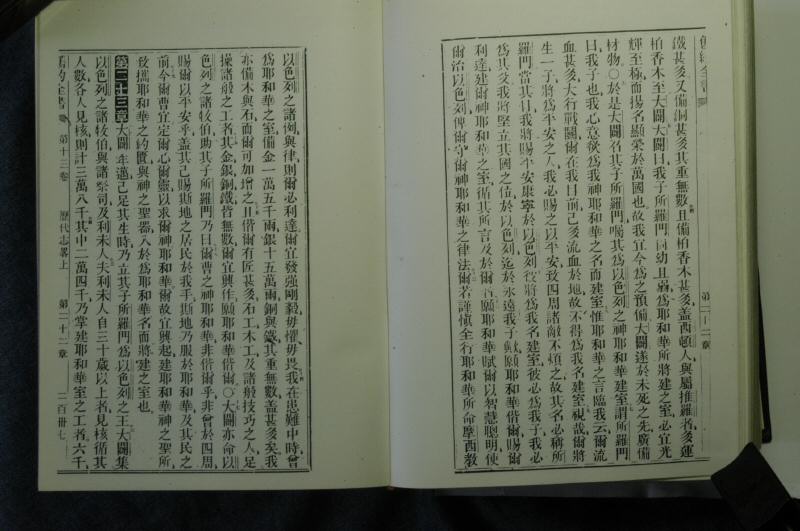 鐵甚多又備銅甚多其重無數且備栢香木甚多蓋西頓人與屬推羅者多運
栢香木至大闢大闢曰我子所羅門尚幼且弱爲耶和華所將建之室必宜光
輝至極而揚名顯榮於萬國也故我宜今爲之預備大闢遂於未死之先廣備
材物○於是大闢召其子所羅門囑其爲以色列之神耶和華建室謂所羅門
曰我子也我心意欲爲我神耶和華之名而建室惟耶和華之言臨我云爾流
血甚多大行戰鬬爾在我目前已多流血於地故不得爲我名建室視哉爾將
生一子將爲平安之人我必賜之以平安致四周諸敵不煩之故其名必稱所
羅門當其日我將賜平安康寧於以色列彼將爲我名建室彼必爲我子我必
爲其父我將堅立其國之位於以色列迄於永遠我子歟願耶和華偕爾賜爾
利達建爾神耶和華之室循其所言及於爾者願耶和華賦爾以智慧聰明使
爾治以色列俾爾守爾神耶和華之律法爾若謹愼全行耶和華所命摩西敎
第二十二章
以色列之諸例與律則爾必利達爾宜發强剛毅毋懼毋畏我在患難中時曾
爲耶和華之室備金一萬五千兩銀十五萬兩銅與鐵其重無數蓋甚多矣我
亦備木與石而爾可加增之且偕爾有匠甚多石工木工及諸般技巧之人足
操諸般之工者其金銀銅鐵皆無數爾宜興作願耶和華偕爾○大闢亦命以
色列之諸牧伯助其子所羅門乃曰爾曹之神耶和華非偕爾乎非曾於四周
賜爾以平安乎蓋其已賜斯地之居民於我手斯地乃服於耶和華及其民之
前今爾曹宜定爾心爾靈以求爾神耶和華爾故宜興起建耶和華神之聖所
致攜耶和華之約匱與神之聖器入於爲耶和華名而將建之室也
第二十三章大闢年邁已足其生時乃立其子所羅門爲以色列之王大闢集
以色列之諸牧伯與諸祭司及利未人夫利未人自三十歲以上者見核循其
人數各人見核則計三萬八千其中二萬四千乃掌建耶和華室之工者六千
舊約全書 第十三卷 歷代志畧上 第二十二章 二百卅七